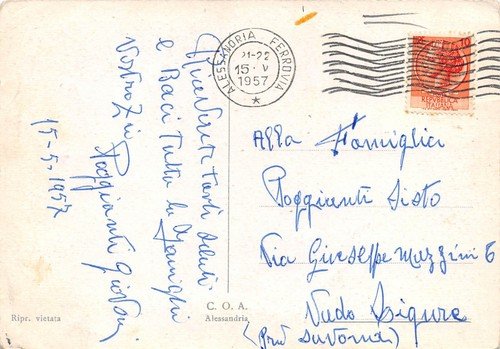 ALESSANDRIA FERROVIA
21-22
15·V
1957
Ricevete Tanti Saluti
e Baci Tutta la Famiglia
Vostro Zio
Poggianti
15-5-1957
Alla Famiglia
Poggianti Sisto
Via Giuseppe Mazzini 6
Vado Ligure
(Prov Savona)
Ripr. vietata
C. O. A.
Alessandria